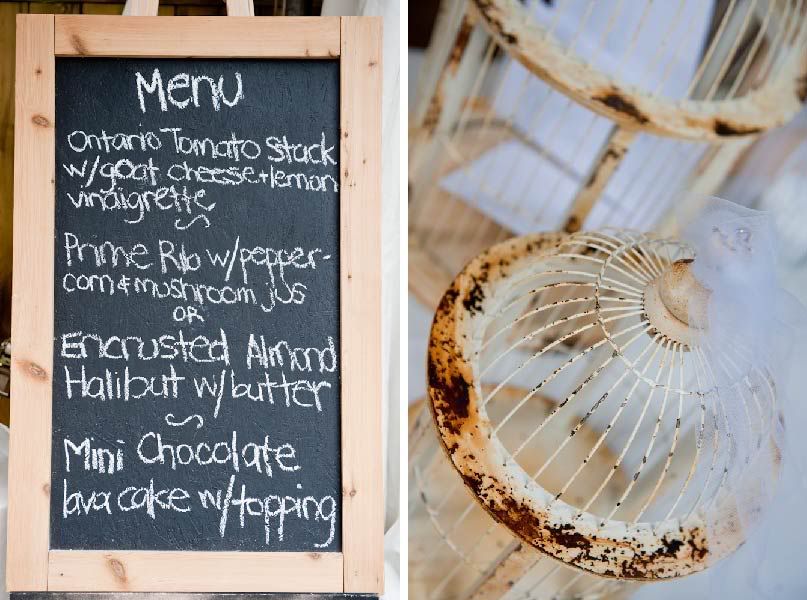 Menu
Ontario Tomato Stack
w/goat cheese+lemon
vindigrette
Prime Rib w/pepper-
corn & mushroom jus
OR
Encrusted Almond
Halibut w/butter
Mini Chocolate
lava cake w/topping